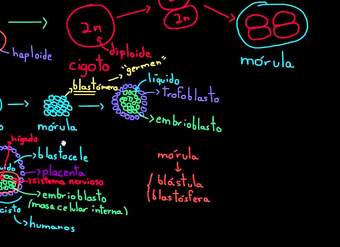 2n
2n
haploide
diploide
cigoto
"germen"
mórula
blastómero
líquido
trofoblasto
embrioblasto
mórula
hígado
blastocele
placenta
sistema nervioso
embrioblasto
(masa celular interna)
humanos
mórula
blástula
blastósfera